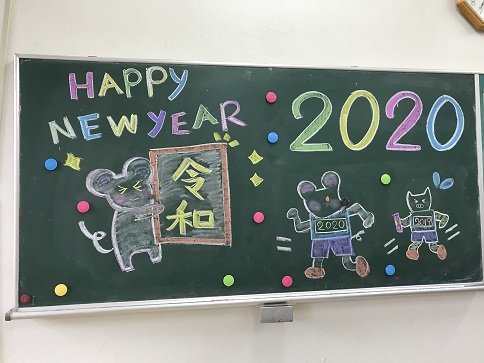 HAPPY
NEW YEAR
2020
令和
2020
2019